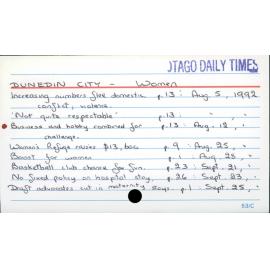 OTAGO DAILY TIMES
DUNEDIN CITY - Women
Increasing numbers flee domestic p.13 : Aug 5, 1992
conflict, violence.
'Not quite respectable' p.13 : " "
Business and hobby combined for p.13 - Aug. 12, "
challenge.
Women's Refuge raises $13,600 p.9 : Aug. 25, "
Boost for women p.1 : Aug. 25, "
Basketball club chance for fun. p.23 : Sept. 21, "
No fixed policy on hospital stay. p.26 : Sept 23, "
Draft advocates cut in maternity stays. p.1 : Sept. 25, "
53/C